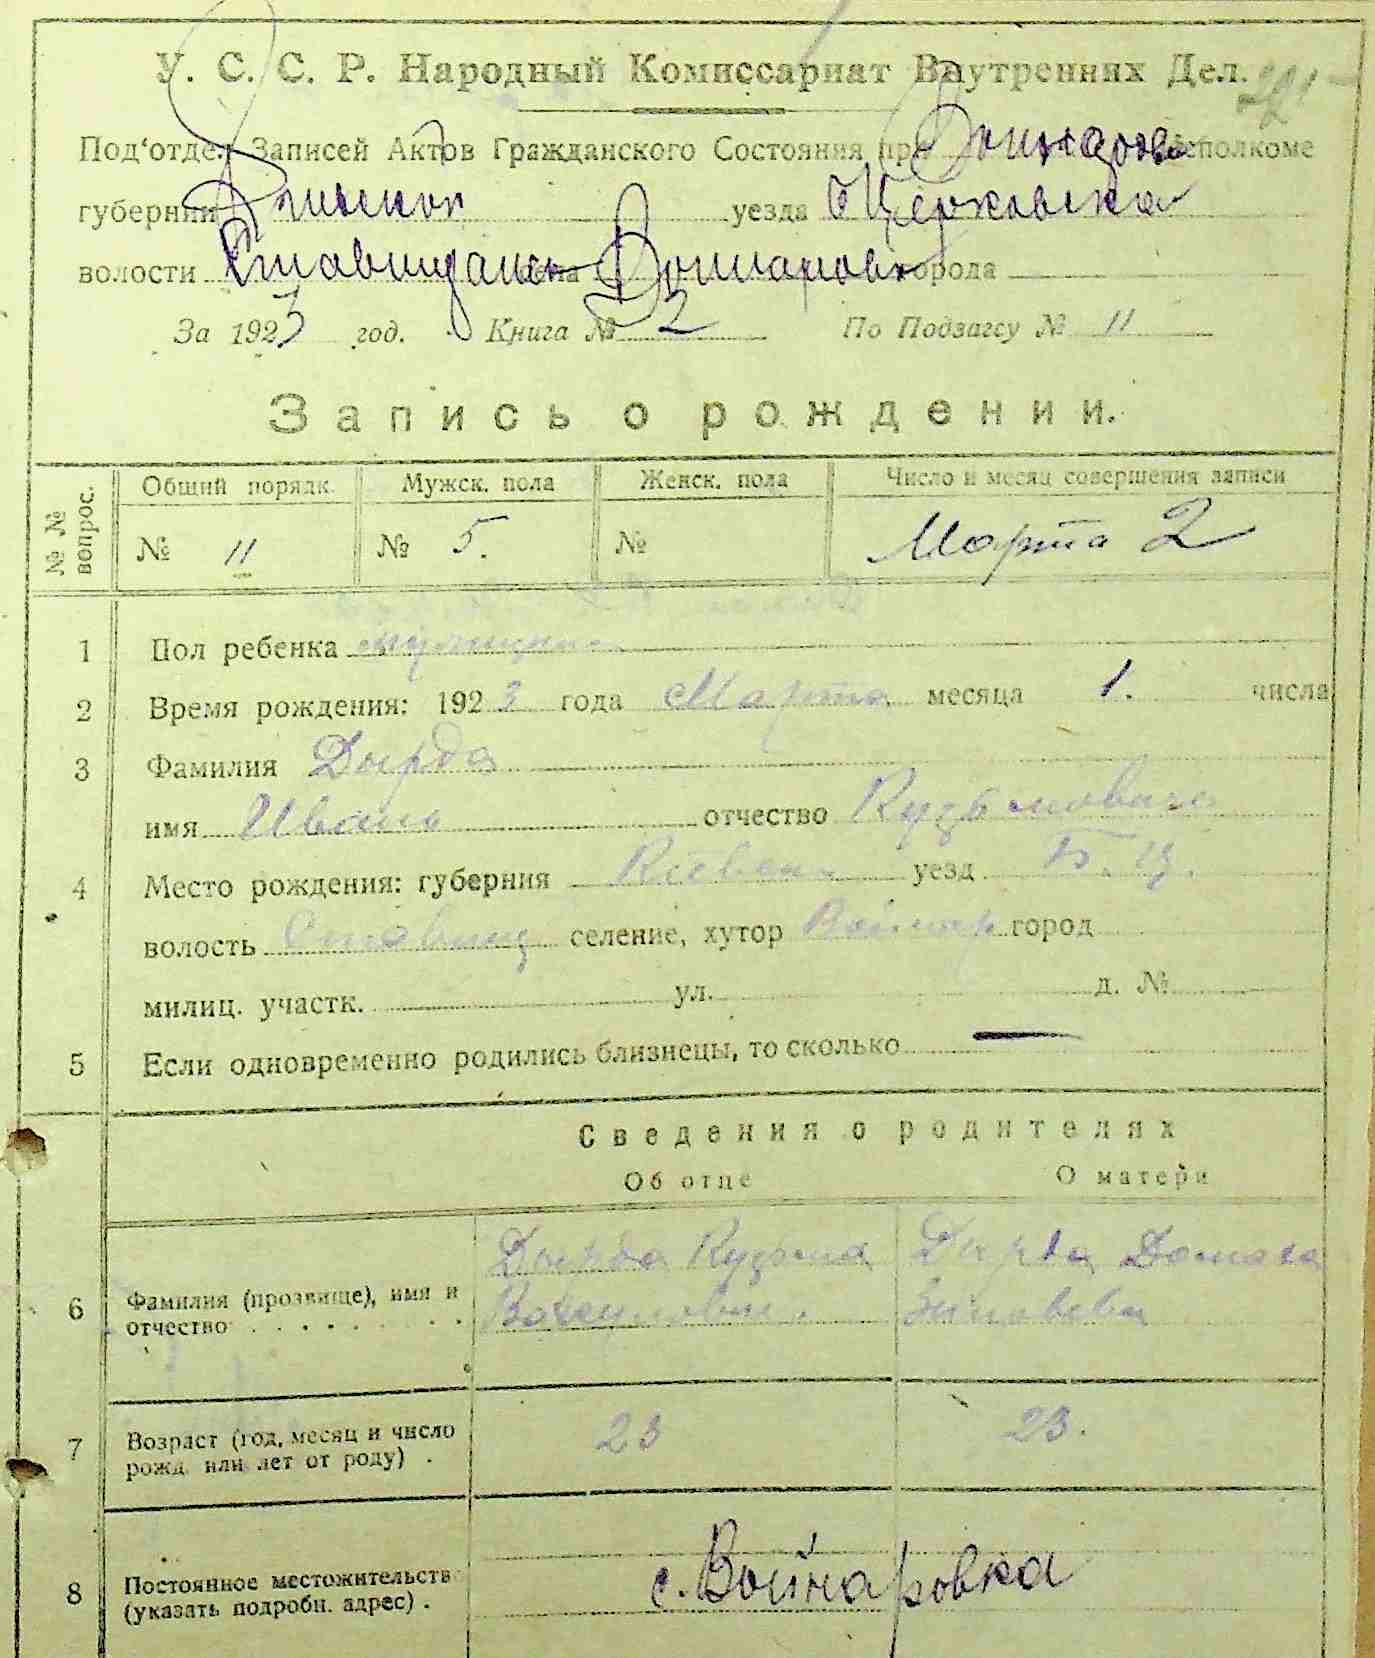 У. С. С. Р. Народный Комиссариат Внутренних Дел.
Под‘отдел Записей Актов Гражданского Состояния при Войнаров исполкоме
губернии Киевской уезда Б Церковска
волости Ставищанск села Войнаровк города
За 1923 год. Книга № 2 По Подзагсу № 11
Запись о рождении.
№ № вопрос.
Общий порядк. Мужск. пола Женск. пола Число и месяц совершения записи
№ 11 № 5. № Марта 2
1 Пол ребенка
2 Время рождения: 1923 года Марта месяца 1. числа
3 Фамилия Дырда
имя Иван отчество Кузьмович
4 Место рождения: губерния Киевск уезд Б. Ц.
волость Ставищ селение, хутор Войнар город
милиц. участк. ул. д. №
5 Если одновременно родились близнецы, то сколько —
Сведения о родителях
Об отце О матери
6 Фамилия (прозвище), имя и отчество
Дырда Кузьма Дырда Домаха
7 Возраст (год, месяц и число рожд. или лет от роду) . 23 23.
8 Постоянное местожительств (указать подробн. адрес) . с. Войнаровка